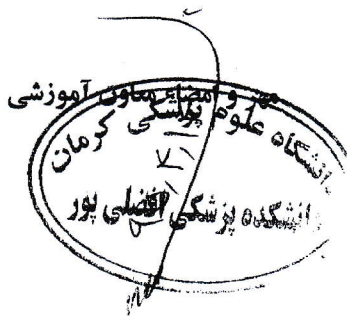 مهر و امضاء معاون آموزشی
دانشگاه علوم پزشکی کرمان
دانشکده پزشکی افضلی پور